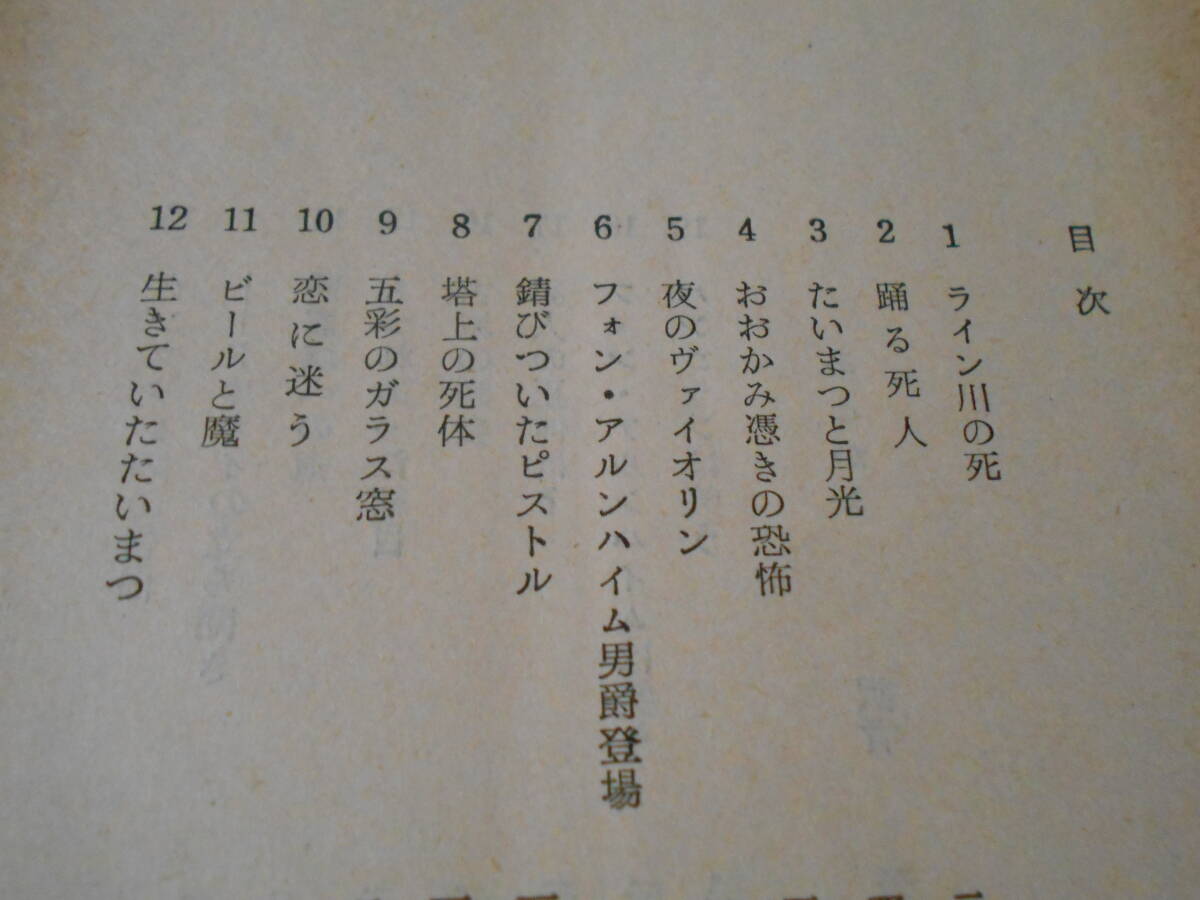 目次
1 ライン川の死
2 踊る死人
3 たいまつと月光
4 おおかみ憑きの恐怖
5 夜のヴァイオリン
6 フォン・アルンハイム男爵登場
7 錆びついたピストル
8 塔上の死体
9 五彩のガラス窓
10 恋に迷う
11 ビールと魔
12 生きていたたいまつ